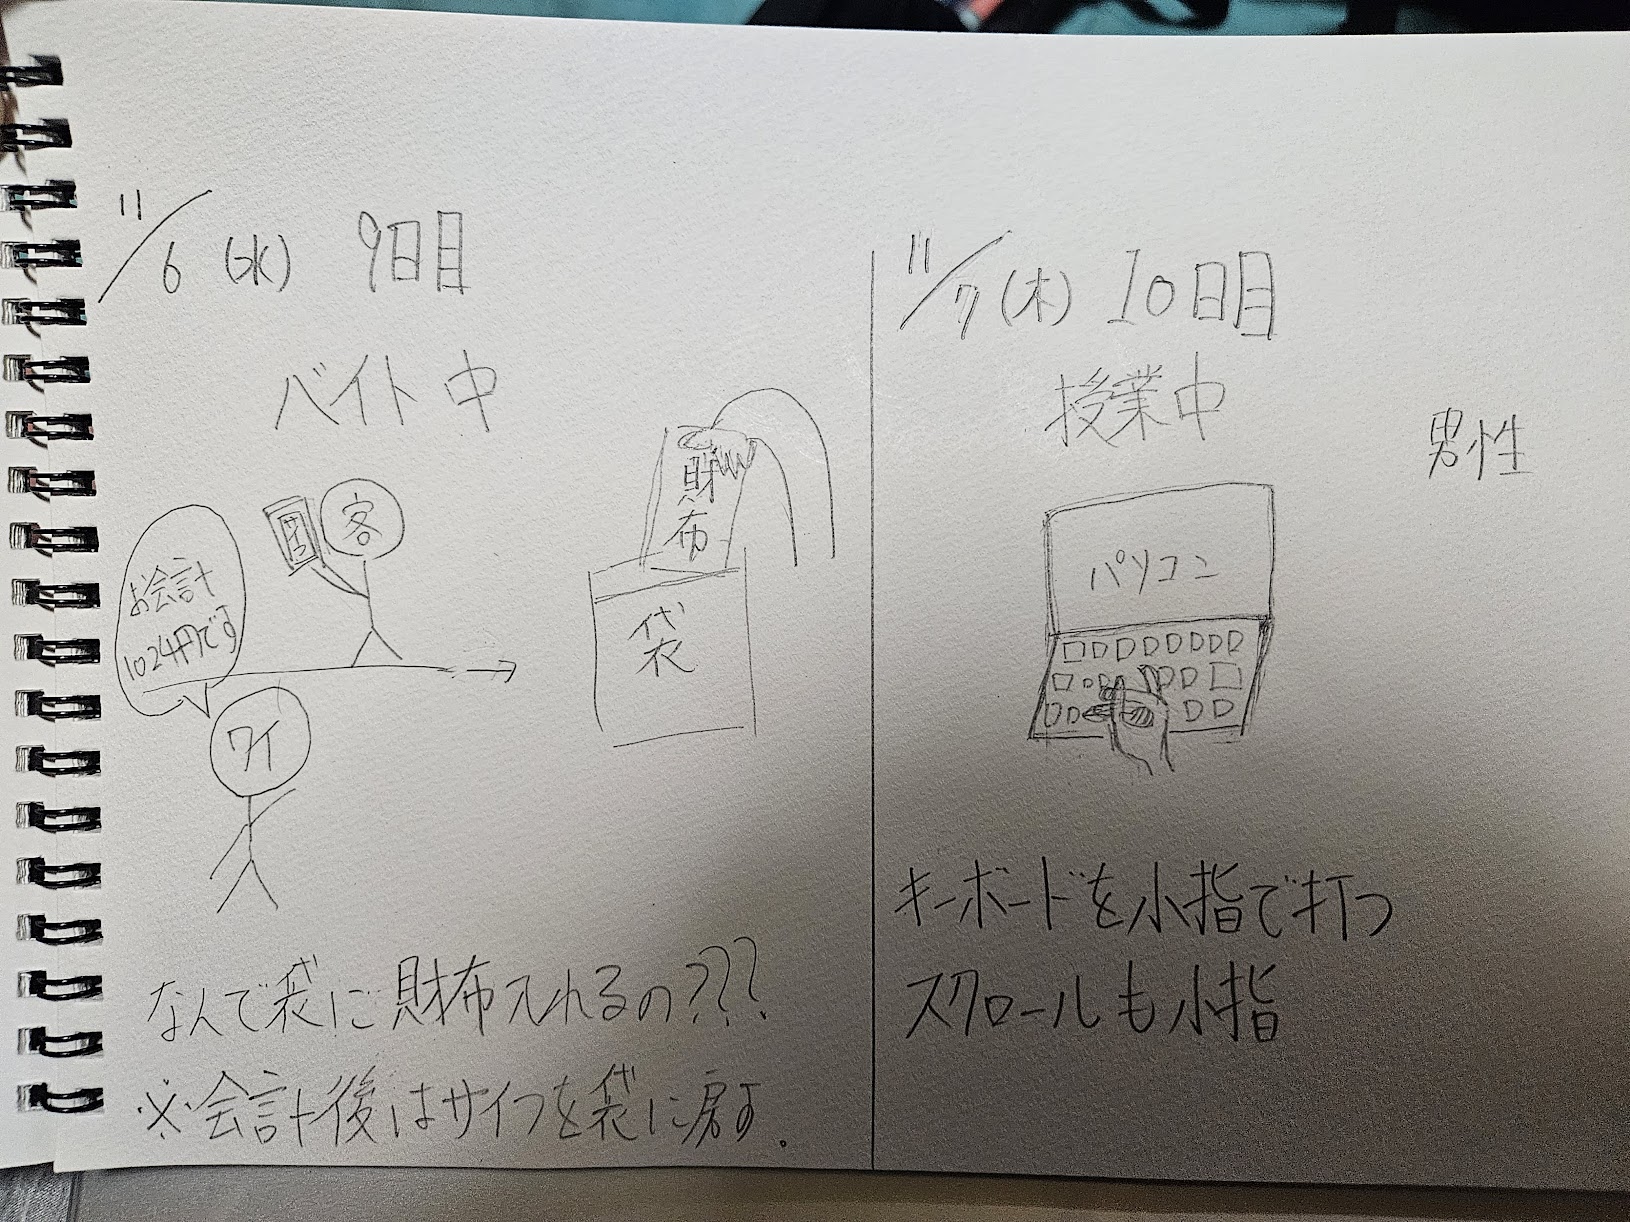 11/6 (水) 9日目
バイト中
お会計
1024円です
客
ワイ
財布
袋
なんで袋に財布入れるの???
※会計後はサイフを袋に戻す。
11/7 (木) 10日目
授業中
男性
パソコン
キーボードを小指で打つ
スクロールも小指